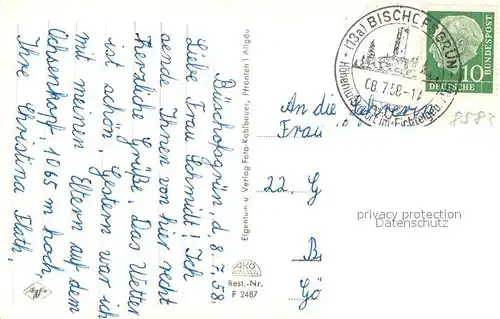 Bischofsgrün, d. 8.7.58.
Liebe Frau Schmidt! Ich
sende Ihnen von hier recht
herzliche Grüße. Das Wetter
ist schön. Gestern war ich
mit meinen Eltern auf dem
Ochsenkopf 1065 m hoch.
Ihre Christina Flath.
Eigentum u Verlag Foto-Kohlbauer, Pfronten | Allgäu
AGFA
Best.-Nr.
F 2487
(13a) BISCHOFSGRÜN
08.7.58-12
Höhenluftkurort im Fichtelgeb.
10
DEUTSCHE
BUNDESPOST
8583
An die
Frau
22. G
B
Gö
privacy protection
Datenschutz